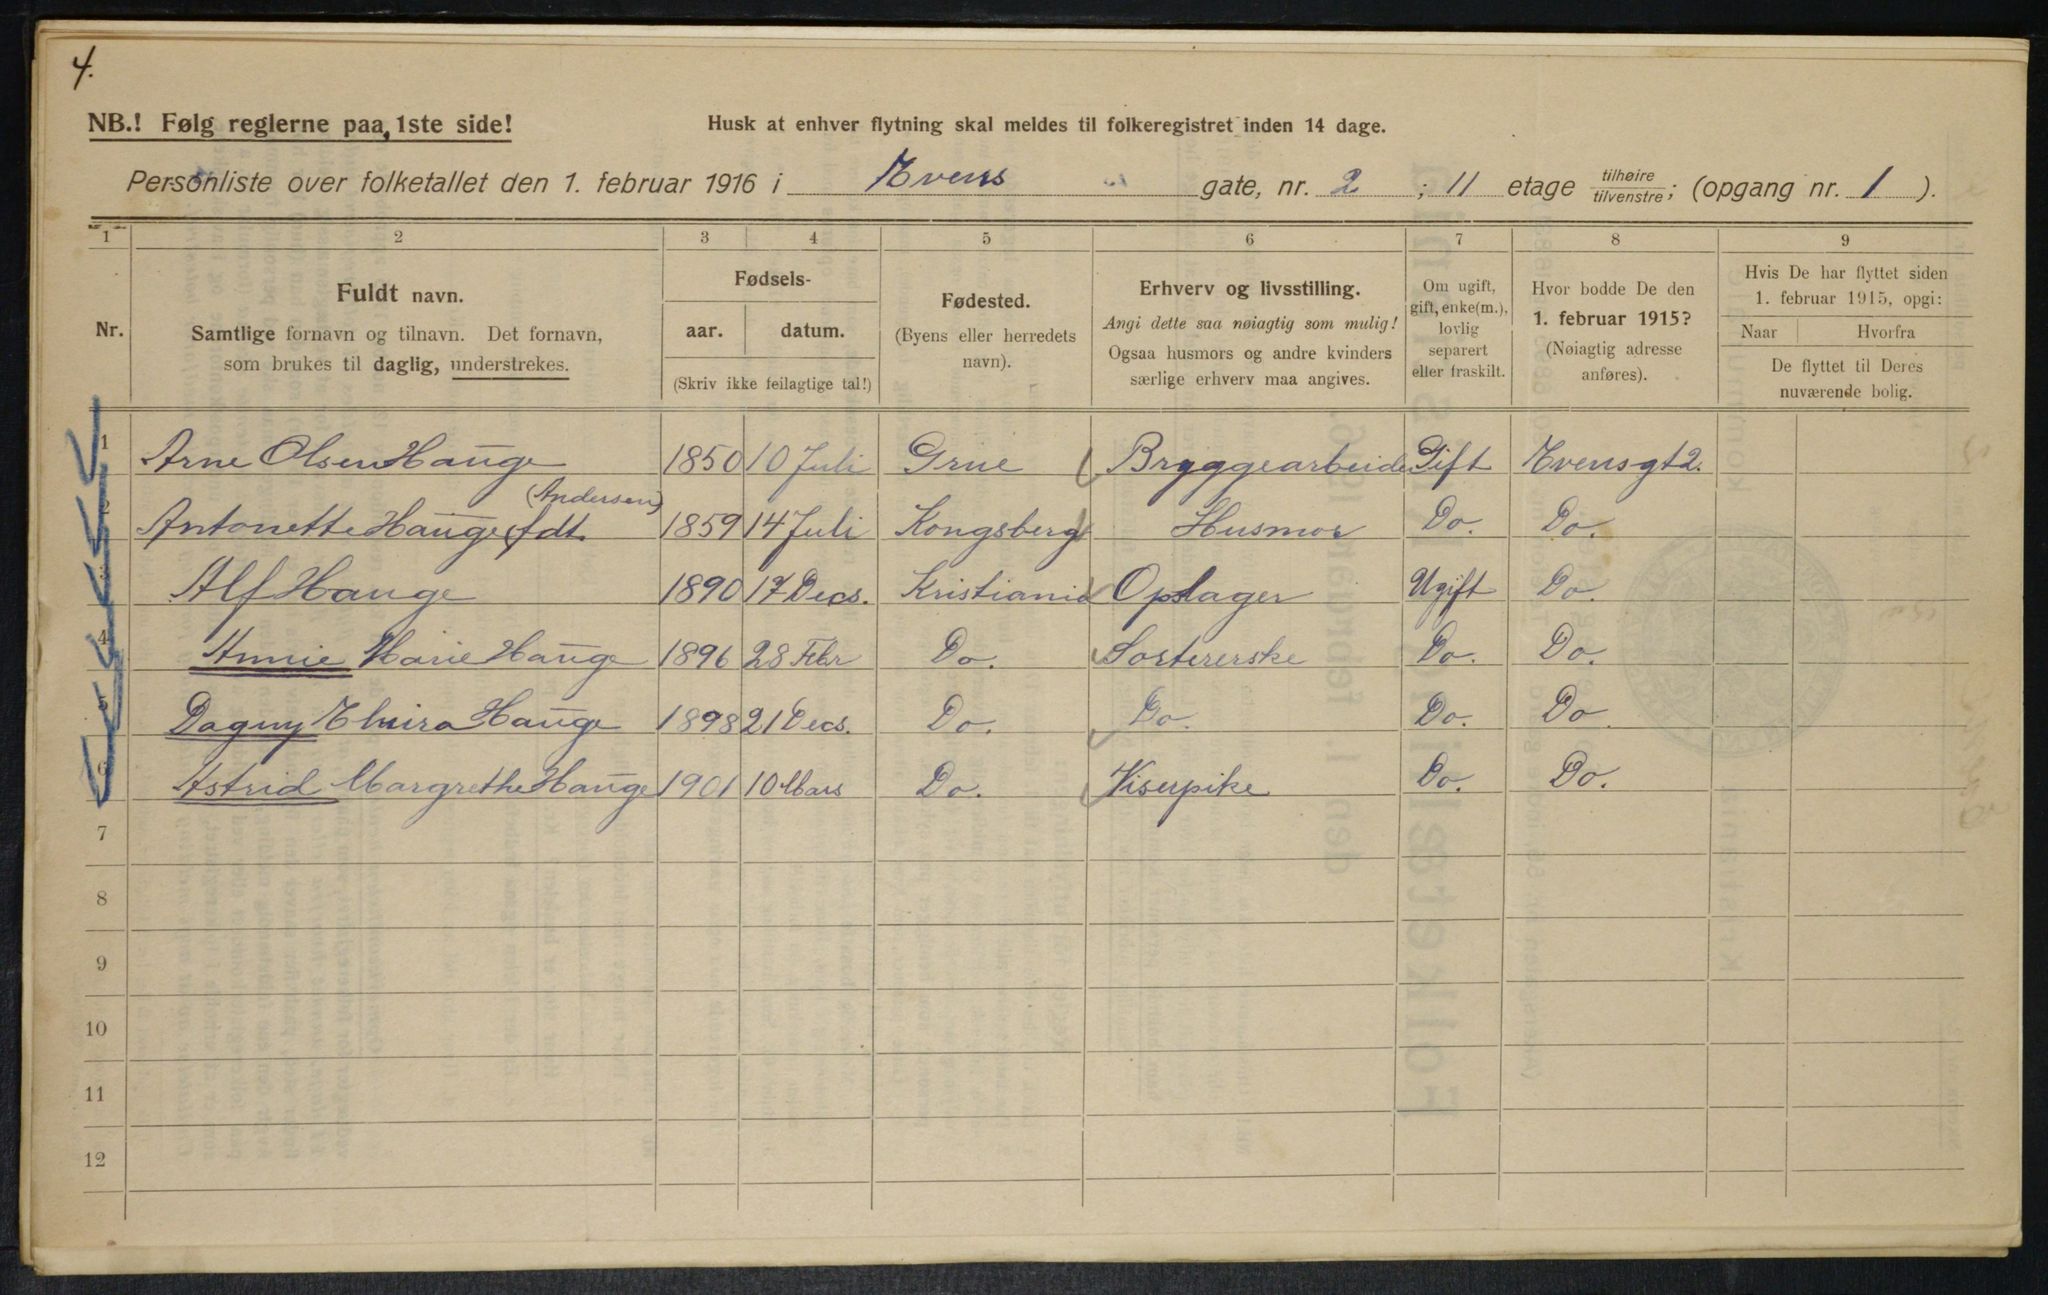 4.
NB.! Følg reglerne paa 1ste side!
Husk at enhver flytning skal meldes til folkeregistret inden 14 dage.
Personliste over folketallet den 1. februar 1916 i Evens gate, nr. 2 ; 11 etage tilhøire/tilvenstre; (opgang nr. 1 ).
1 2 3 4 5 6 7 8 9
Nr.
Fuldt navn.
Samtlige fornavn og tilnavn. Det fornavn,
som brukes til daglig, understrekes.
Fødsels-
aar. datum.
(Skriv ikke feilagtige tal!)
Fødested.
(Byens eller herredets
navn).
Erhverv og livsstilling.
Angi dette saa nøiagtig som mulig!
Ogsaa husmors og andre kvinders
særlige erhverv maa angives.
Om ugift,
gift, enke(m.),
lovlig
separert
eller fraskilt.
Hvor bodde De den
1. februar 1915?
(Nøiagtig adresse
anføres).
Hvis De har flyttet siden
1. februar 1915, opgi:
Naar Hvorfra
De flyttet til Deres
nuværende bolig.
1 Arne Olsen Hauge 1850 10 Juli Grue Bryggearbeider Gift Evensgt 2.
2 Antonette Hauge fdt. (Andersen) 1859 14 Juli Kongsberg Husmor Do. Do.
3 Alf Hauge 1890 17 Decs. Kristiania Opslager Ugift Do.
4 Annie Marie Hauge 1896 28 Febr Do. Sortererske Do. Do.
5 Dagny Elvira Hauge 1898 21 Decs. Do. Do. Do. Do
6 Astrid Margrethe Hauge 1901 10 Mars Do. Viserpike Do. Do.
7
8
9
10
11
12